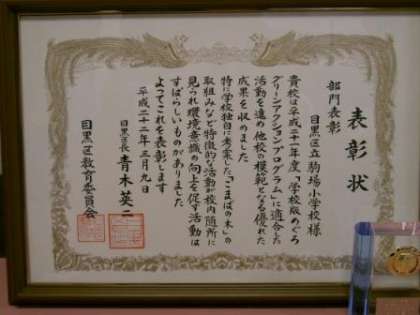 表彰状
部門表彰
目黒区立駒場小学校様
貴校は平成二十一年度「学校版めぐろ
グリーンアクションプログラム」に適合した
活動を進め他校の模範となる優れた
成果を収めました
特に学校独自に考案した「こまばの木」の
取組みなど特徴的な活動が校内随所に
見られ環境意識の向上を促す活動は
すばらしいものがありました
よってこれを表彰します
平成二十二年三月九日
目黒区長 青木英二
目黒区教育委員会